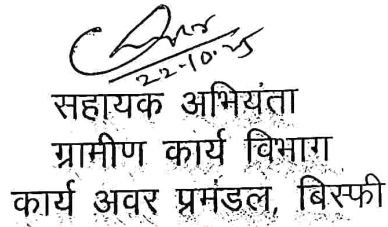 22-10-25
सहायक अभियंता
ग्रामीण कार्य विभाग
कार्य अवर प्रमंडल, बिस्फी